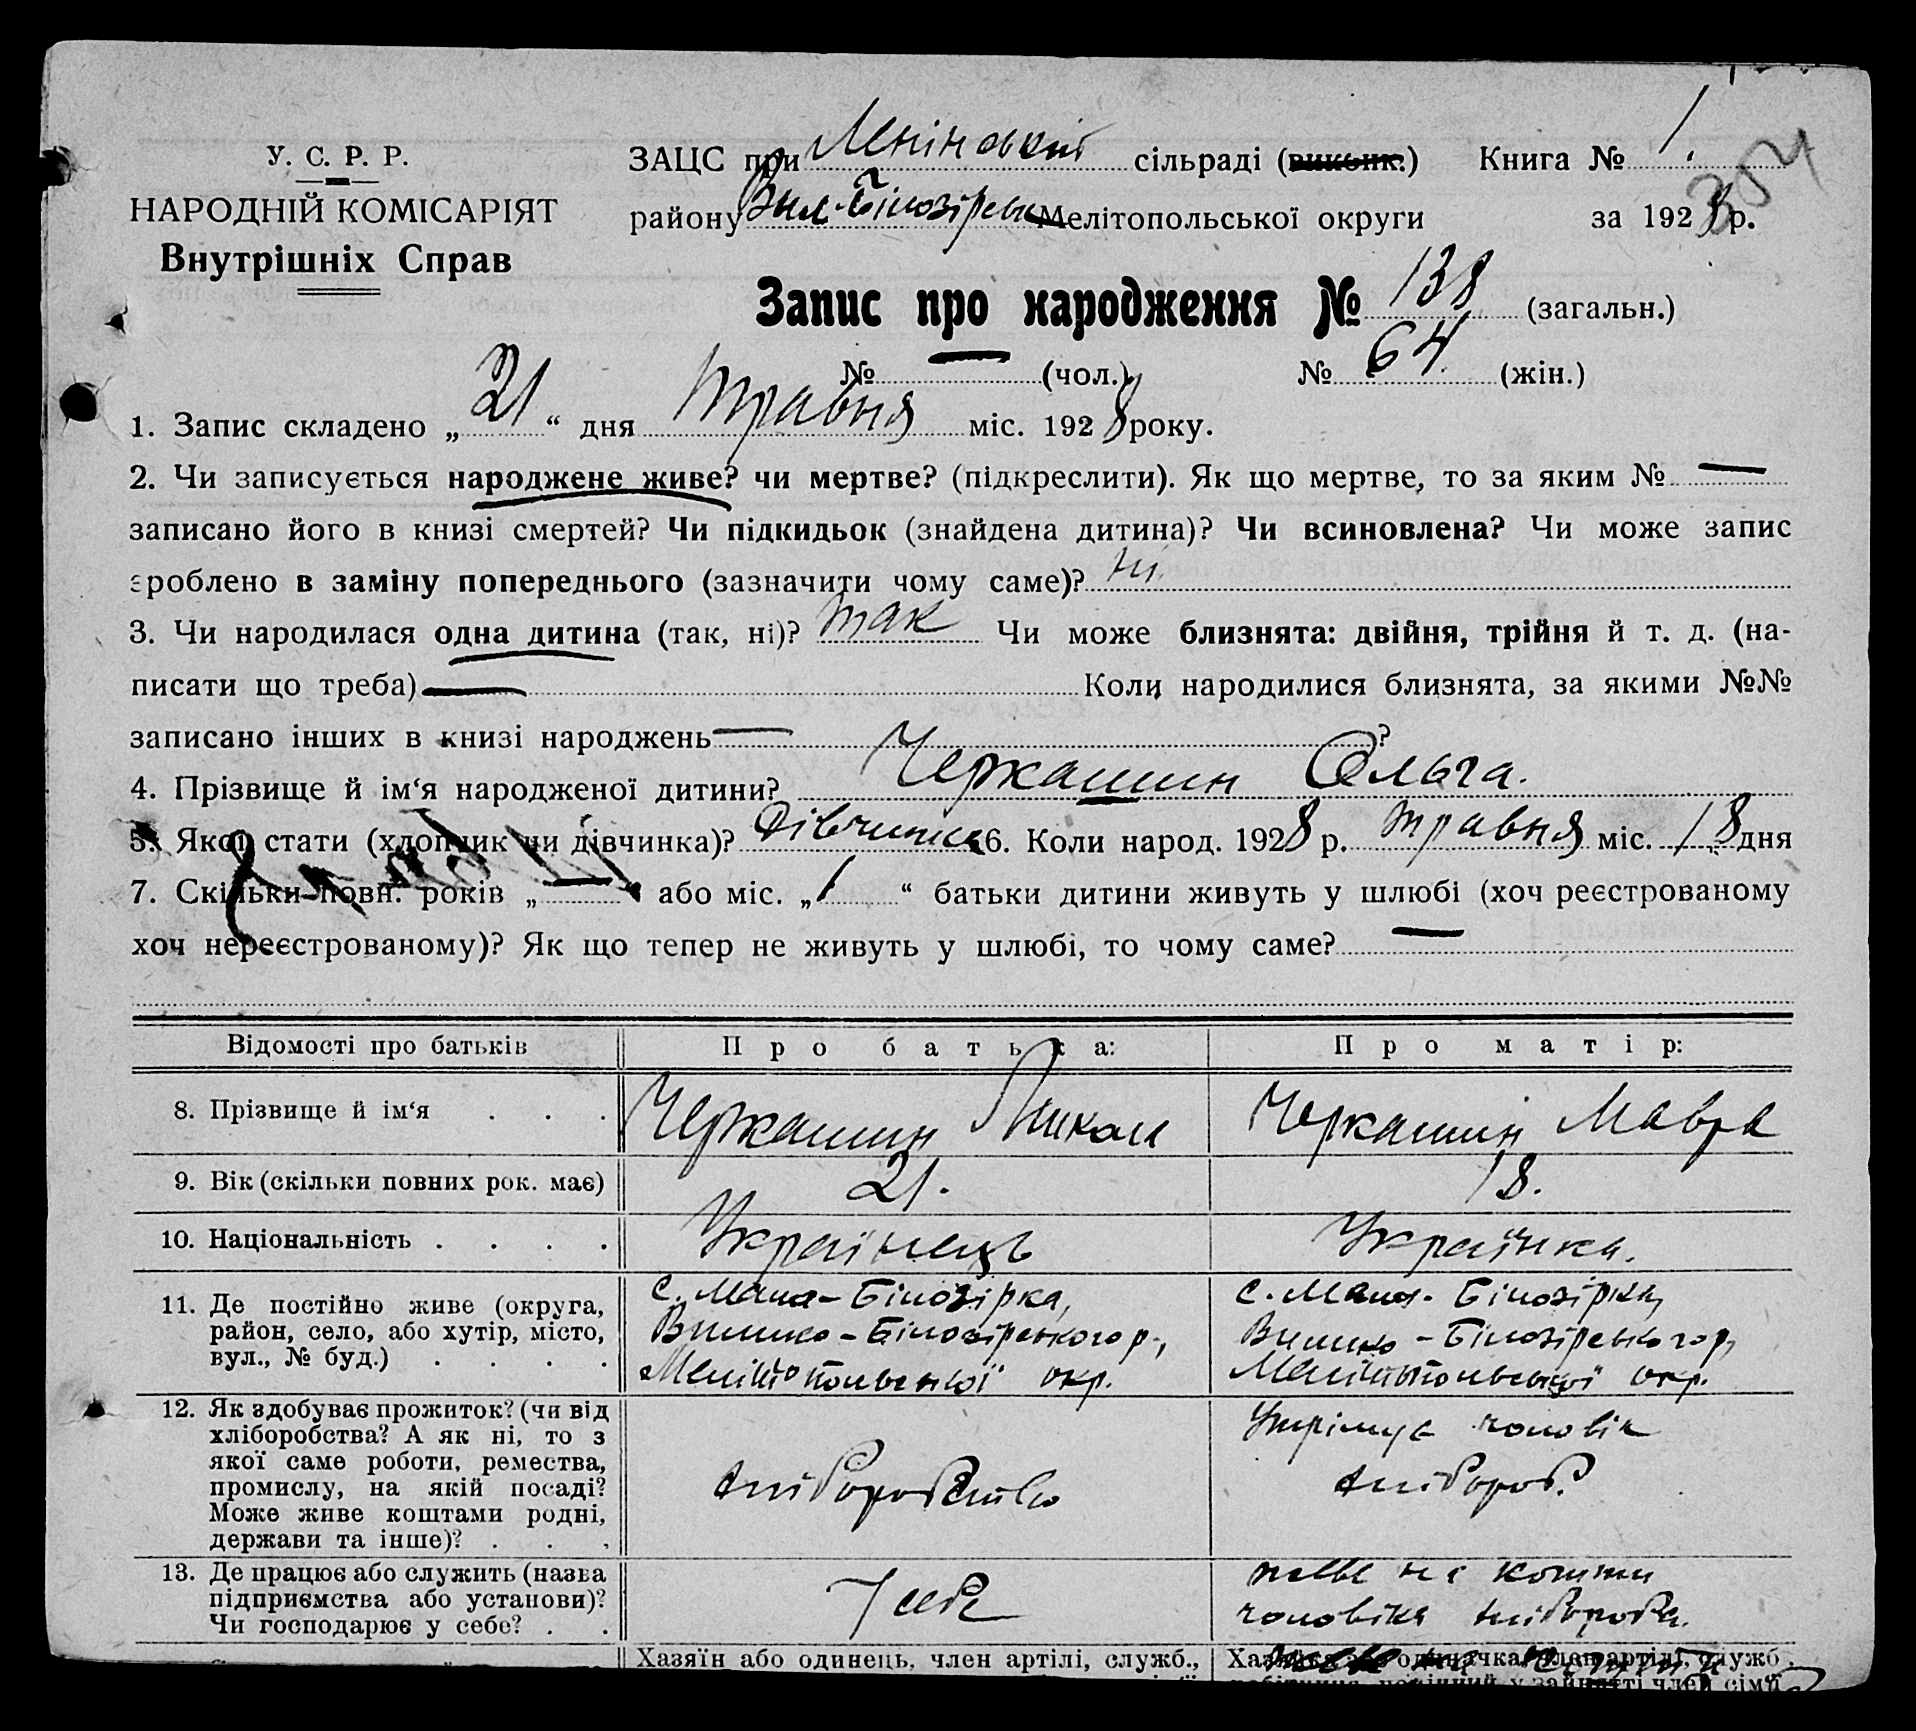 У. С. Р. Р.
НАРОДНІЙ КОМІСАРІЯТ
Внутрішніх Справ
ЗАЦС при Ленінській сільраді (виконк.) Книга № 1.
району Вел.-Білозірськ Мелітопольської округи за 1928 р.
304
Запис про народження № 138 (загальн.)
№ — (чол.) № 64 (жін.)
1. Запис складено „21“ дня травня міс. 1928 року.
2. Чи записується народжене живе? чи мертве? (підкреслити). Як що мертве, то за яким № —
записано його в книзі смертей? Чи підкидьок (знайдена дитина)? Чи всиновлена? Чи може запис
зроблено в заміну попереднього (зазначити чому саме)? ні.
3. Чи народилася одна дитина (так, ні)? так Чи може близнята: двійня, трійня й т. д. (на-
писати що треба) — Коли народилися близнята, за якими №№
записано інших в книзі народжень — ?
4. Прізвище й ім‘я народженої дитини? Черкашин Ольга.
5. Якої стати (хлопчик чи дівчинка)? дівчинка 6. Коли народ. 1928 р. травня міс. 18 дня
7. Скільки повн. років „—“ або міс. „1“ батьки дитини живуть у шлюбі (хоч реєстрованому
хоч нереєстрованому)? Як що тепер не живуть у шлюбі, то чому саме? —
Відомості про батьків Про батька: Про матір:
8. Прізвище й ім‘я . . . Черкашин Черкашин Мавра
9. Вік (скільки повних рок. має) 21. 18.
10. Національність . . . . Українець Українка.
11. Де постійно живе (округа,
район, село, або хутір, місто,
вул., № буд.) . . . .
с. Мала-Білозірка,
Велико-Білозірського р.,
Мелітопольської окр.
с. Мала-Білозірка,
Велико-Білозірського р,
Мелітопольської окр.
12. Як здобуває прожиток? (чи від
хліборобства? А як ні, то з
якої саме роботи, ремества,
промислу, на якій посаді?
Може живе коштами родні,
держави та інше)? . . .
хліборобство
Утрімує чоловік
хлібороб.
13. Де працює або служить (назва
підприємства або установи)?
Чи господарює у себе? . .
У себе
живе на кошти
чоловіка хлібороба.
Хазяїн або одинець, член артілі, служб.,
Хазяйка або одиначка, член артілі, служб.,